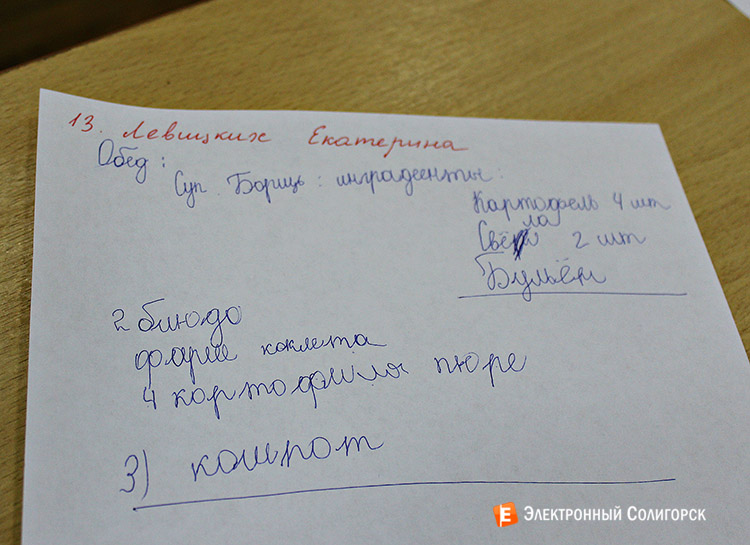 13. Левицких Екатерина
Обед:
Суп Борщь: инградеенты:
Картофель 4 шт
Свёкла 2 шт
Бульён
2 блюдо
фарш каклета
4 картофиля пюре
3) компот
Электронный Солигорск